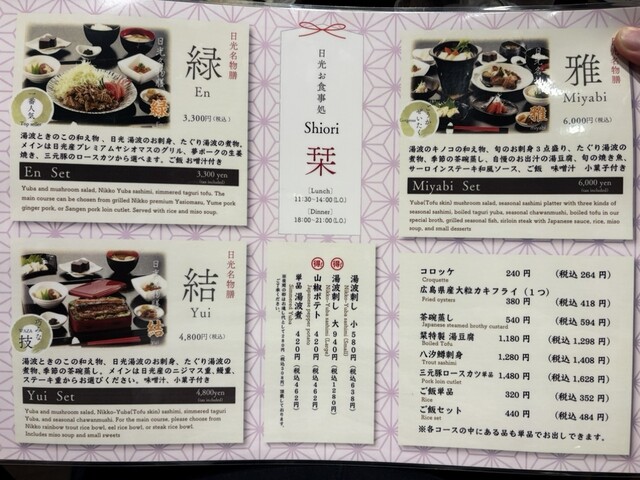 日光名物膳
緑
En
3,300円(税込)
一番人気
湯波ときのこの和え物 、日光 湯波のお刺身、たぐり湯波の煮物。
メインは日光産プレミアムヤシオマスのグリル、夢ポークの生姜
焼き、三元豚のロースカツから選べます。ご飯 お噌汁付き
En Set
3,300 yen
(tax included)
Yuba and mushroom salad, Nikko Yuba sashimi, simmered taguri tofu. The
main course can be chosen from grilled Nikko premium Yasiomasu, Yume pork
ginger pork, or Sangen pork loin cutlet. Served with rice and miso soup.
日光名物膳
結
Yui
4,800円(税込)
技
湯波ときのこの和え物、日光湯波のお刺身、たぐり湯波の
煮物、季節の茶碗蒸し。メインは日光産のニジマス重、鰻重、
ステーキ重からお選びください。味噌汁、小菓子付き
Yui Set
4,800yen
(tax included)
Yuba and mushroom salad, Nikko-Yuba(Tofu skin) sashimi, simmered taguri
Yuba, and seasonal chawanmushi. For the main course, please choose from
Nikko rainbow trout rice bowl, eel rice bowl, or steak rice bowl.
Includes miso soup and small sweets
日光お食事処
Shiori
栞
[Lunch]
11:30-14:00(L.O.)
[Dinner]
18:00-21:00(L.O.)
得 得
湯波刺し 小 580円 (税込638円)
Nikko-Yuba sashimi (Small)
湯波刺し 大 940円 (税込1280円)
Nikko-Yuba sashimi (Large)
山椒ポテト 420円 (税込462円)
Japanese pepper potato
単品 湯波煮 420円 (税込462円)
Simmered Yuba
日光名物膳
雅
Miyabi
6,000円(税込)
湯波のキノコの和え物、旬のお刺身３点盛り、たぐり湯波の
煮物、季節の茶碗蒸し、自慢のお出汁の湯豆腐、旬の焼き魚、
サーロインステーキ和風ソース、ご飯 味噌汁 小菓子付き
Miyabi Set
6,000 yen
(tax included)
Yuba(Tofu skin) mushroom salad, seasonal sashimi platter with three kinds of
seasonal sashimi, boiled taguri yuba, seasonal chawanmushi, boiled tofu in our
special broth, grilled seasonal fish, sirloin steak with Japanese sauce, rice, miso
soup, and small desserts
コロッケ 240円 (税込 264円)
Croquette
広島県産大粒カキフライ（１つ）
Fried oysters 380円 (税込 418円)
茶碗蒸し 540円 (税込 594円)
Japanese steamed brothy custard
栞特製 湯豆腐 1,180円 (税込 1,298円)
Boiled Tofu
八汐鱒刺身 1,280円 (税込 1,408円)
Trout sashimi
三元豚ロースカツ単品 1,480円 (税込 1,628円)
Pork loin cutlet
ご飯単品 320円 (税込 352円)
Rice
ご飯セット 440円 (税込 484円)
Rice set
※各コースの中にある品も単品でお出しできます。